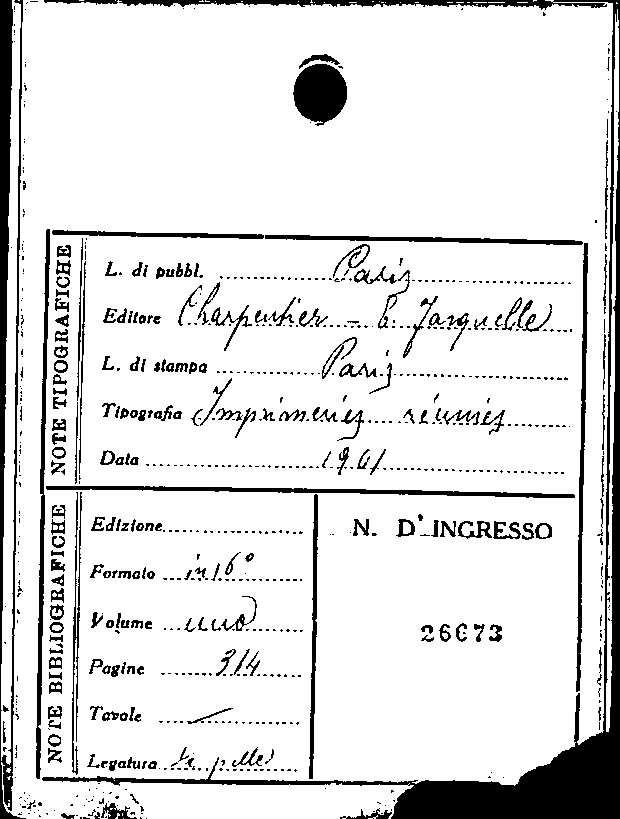 NOTE TIPOGRAFICHE
L. di pubbl. Paris
Editore Charpentier - E. Fasquelle
L. di stampa Paris
Tipografia Imprimeries réunies
Data 1901
NOTE BIBLIOGRAFICHE
Edizione
Formato in 16°
Volume uno
Pagine 314
Tavole
Legatura pelle
N. D'INGRESSO
26673